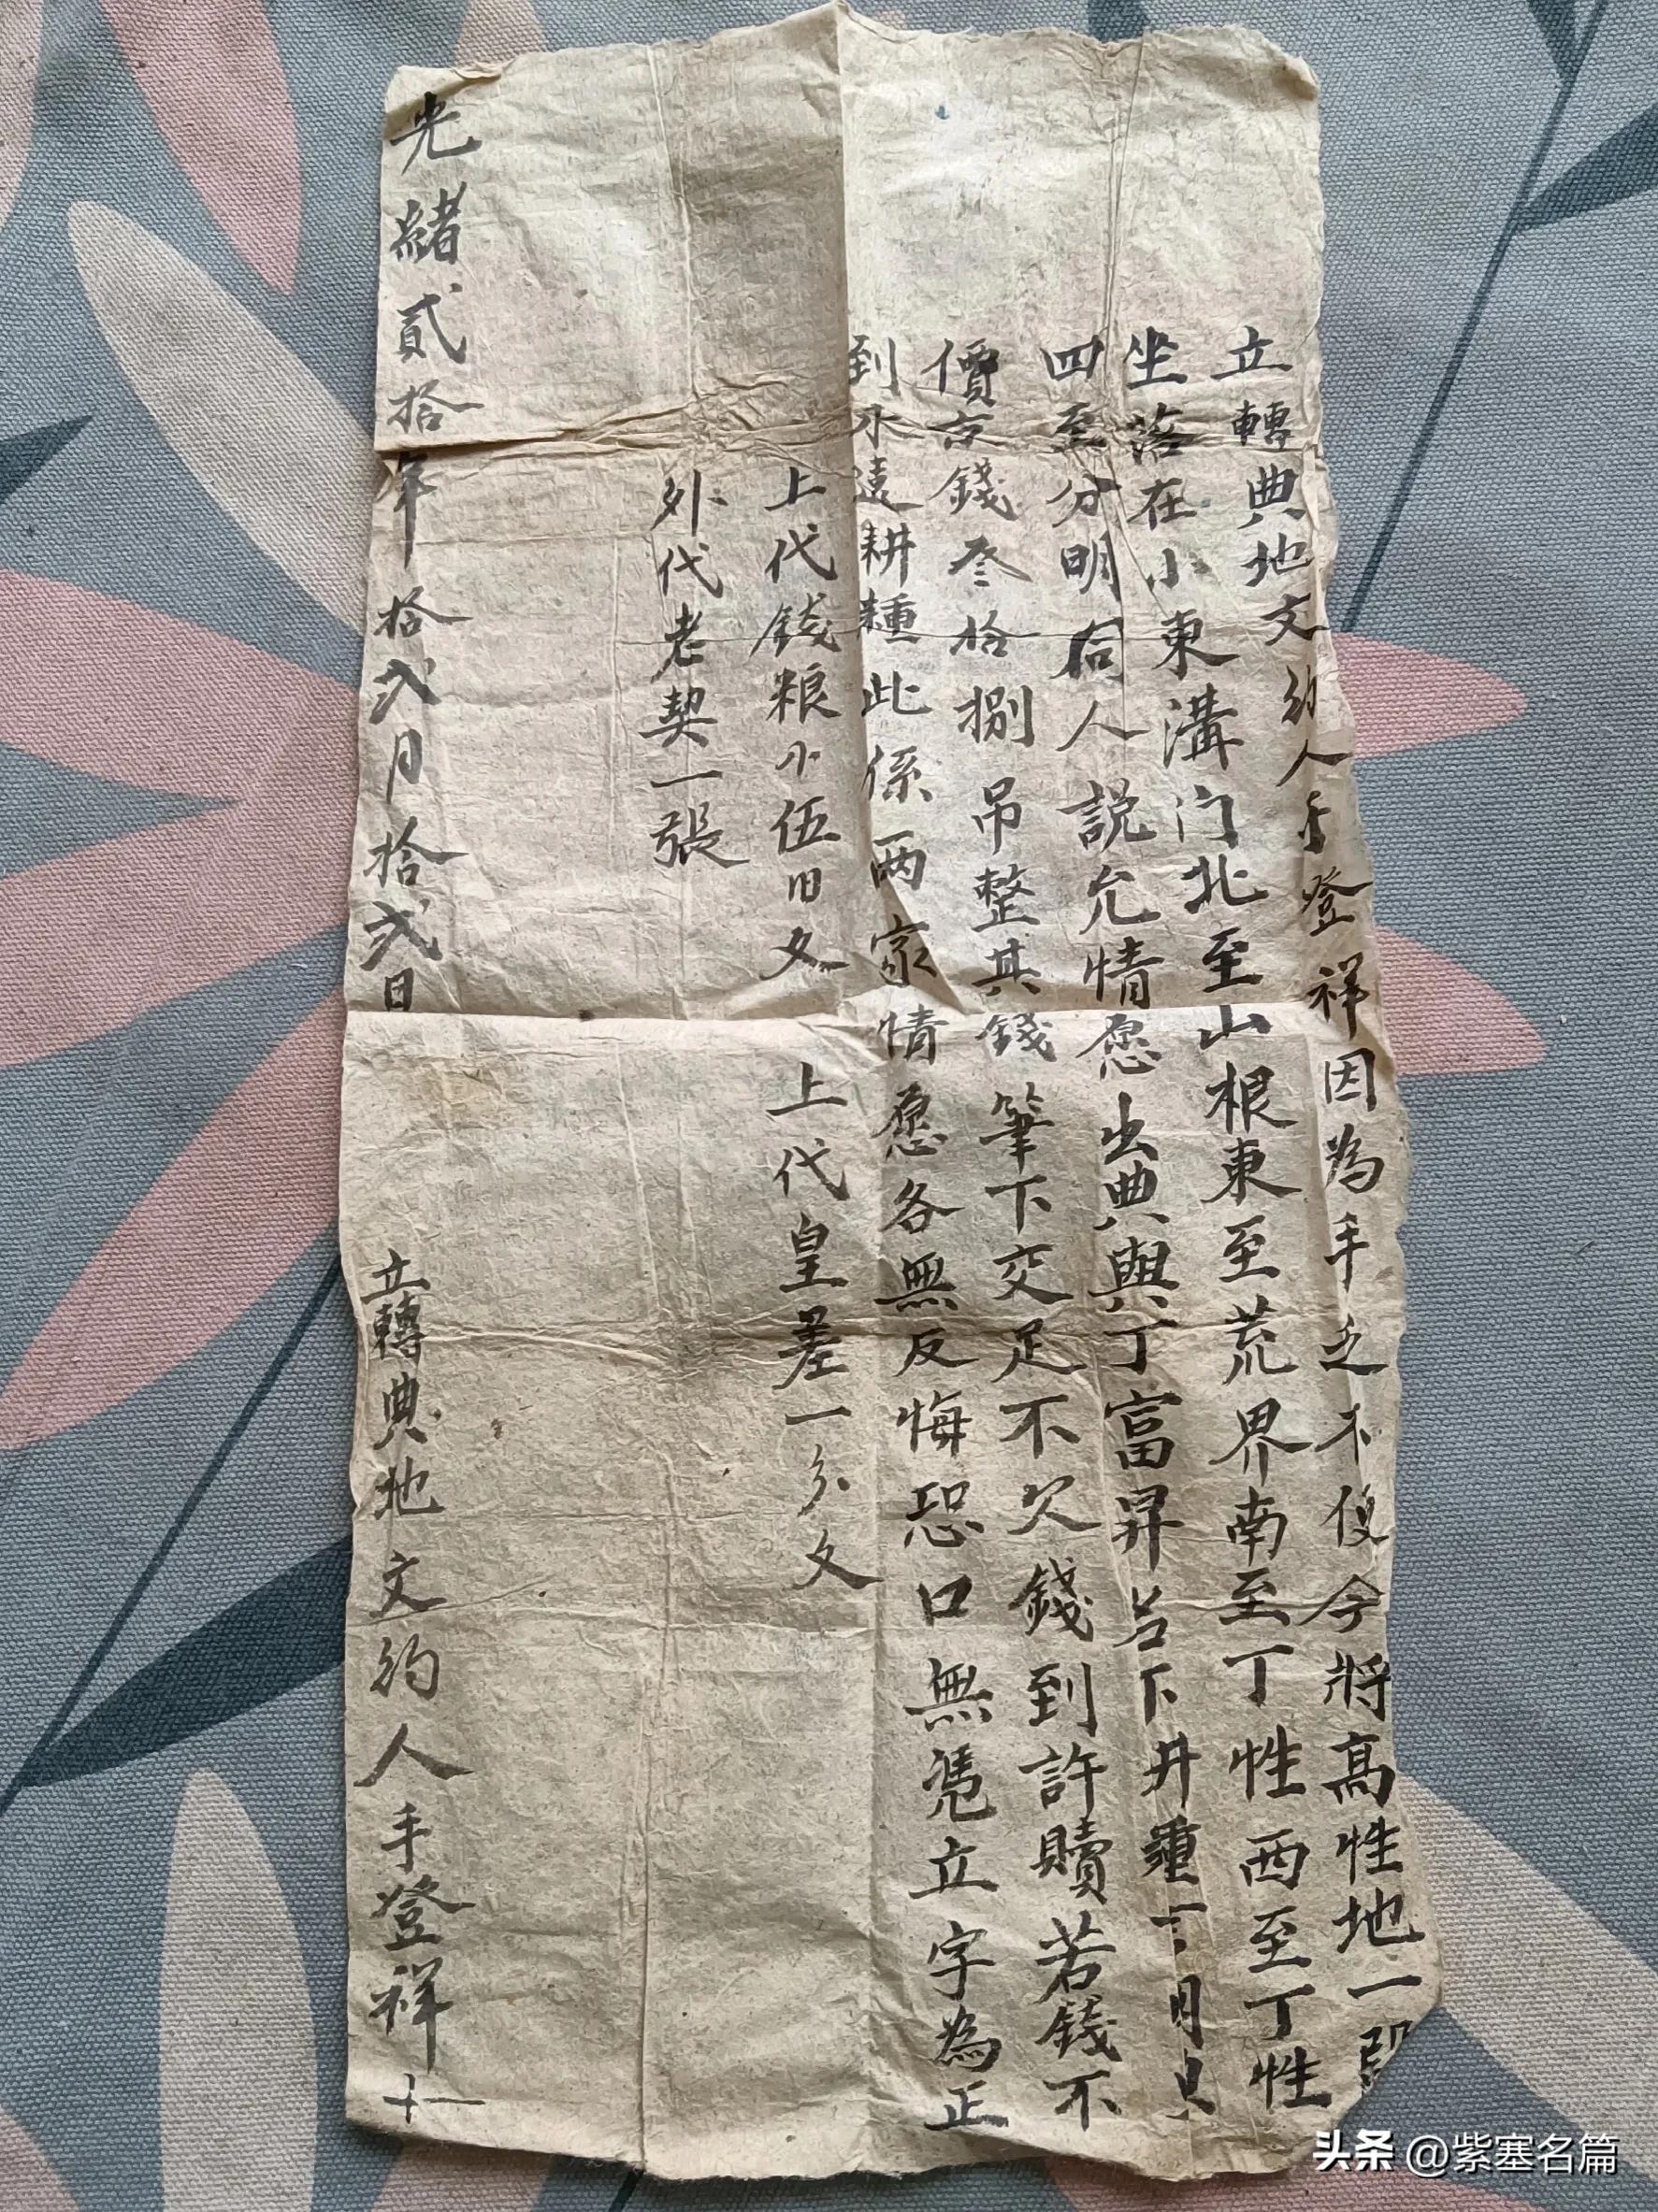 立轉典地文約人手登祥因為手乏不便今將高性地一段
坐落在小東溝门北至山根東至荒界南至丁性西至丁性
四至分明同人説允情愿出典與丁富昇名下井種
價京錢叁拾捌吊整其錢筆下交足不欠錢到許贖若錢不
到永遠耕種此係兩家情愿各無反悔恐口無憑立字為正
上代錢粮小伍旧文 上代皇差一分文
外代老契一張
光緒貳拾年拾弍月拾弍日 立轉典地文約人手登祥十
头条 @紫塞名篇